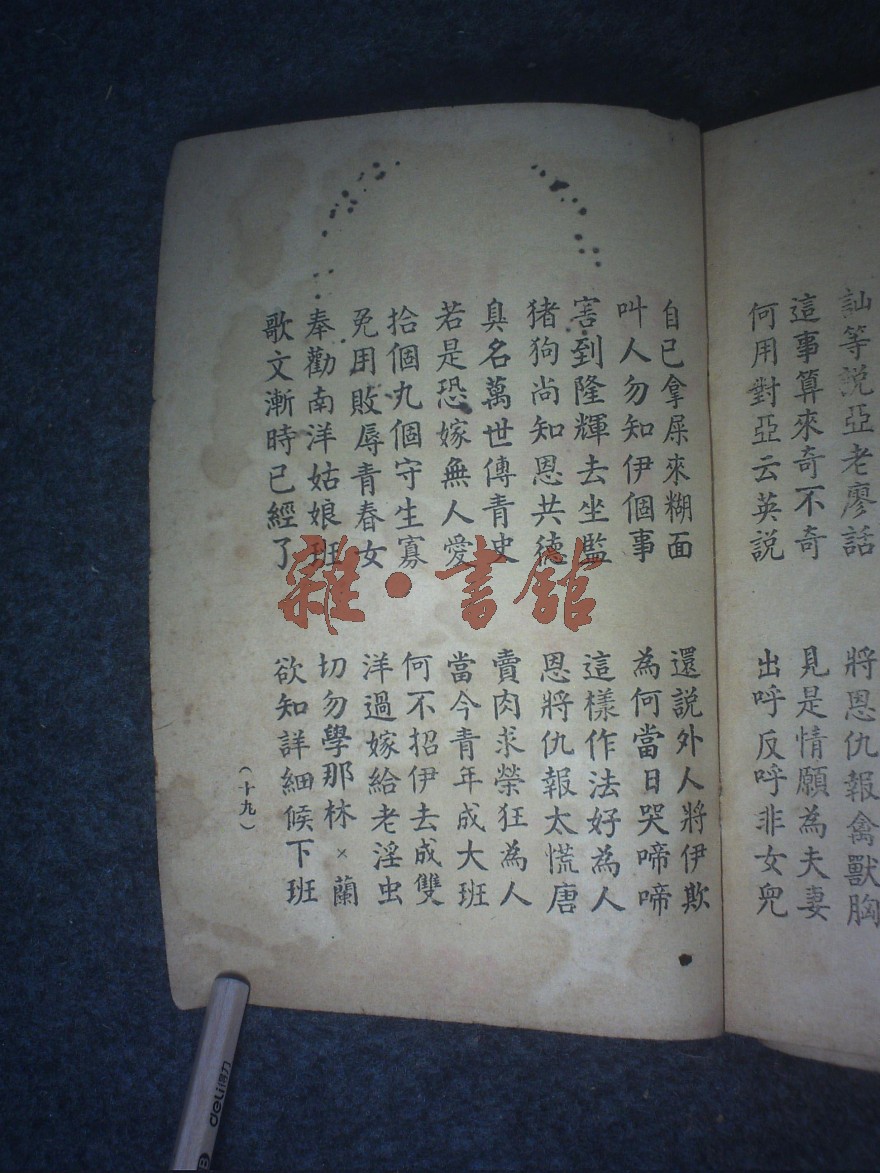 訕等説亞老廖話 將恩仇報禽獸胸
這事算來奇不奇 見是情願為夫妻
何用對亞云英説 出呼反呼非女兒
自己拿屎來糊面 還説外人將伊欺
叫人勿知伊個事 為何當日哭啼啼
害到隆輝去坐監 這樣作法好為人
猪狗尚知恩共德 恩將仇報太慌唐
臭名萬世傳青史 賣肉求榮狂為人
若是恐嫁無人愛 當今青年成大班
拾個丸個守生寡 何不招伊去成雙
免用敗辱青春女 洋過嫁給老淫虫
奉勸南洋姑娘班 切勿學那林×蘭
歌文漸時已經了 欲知詳細候下班
(十九)
雜·書舘
deli得力